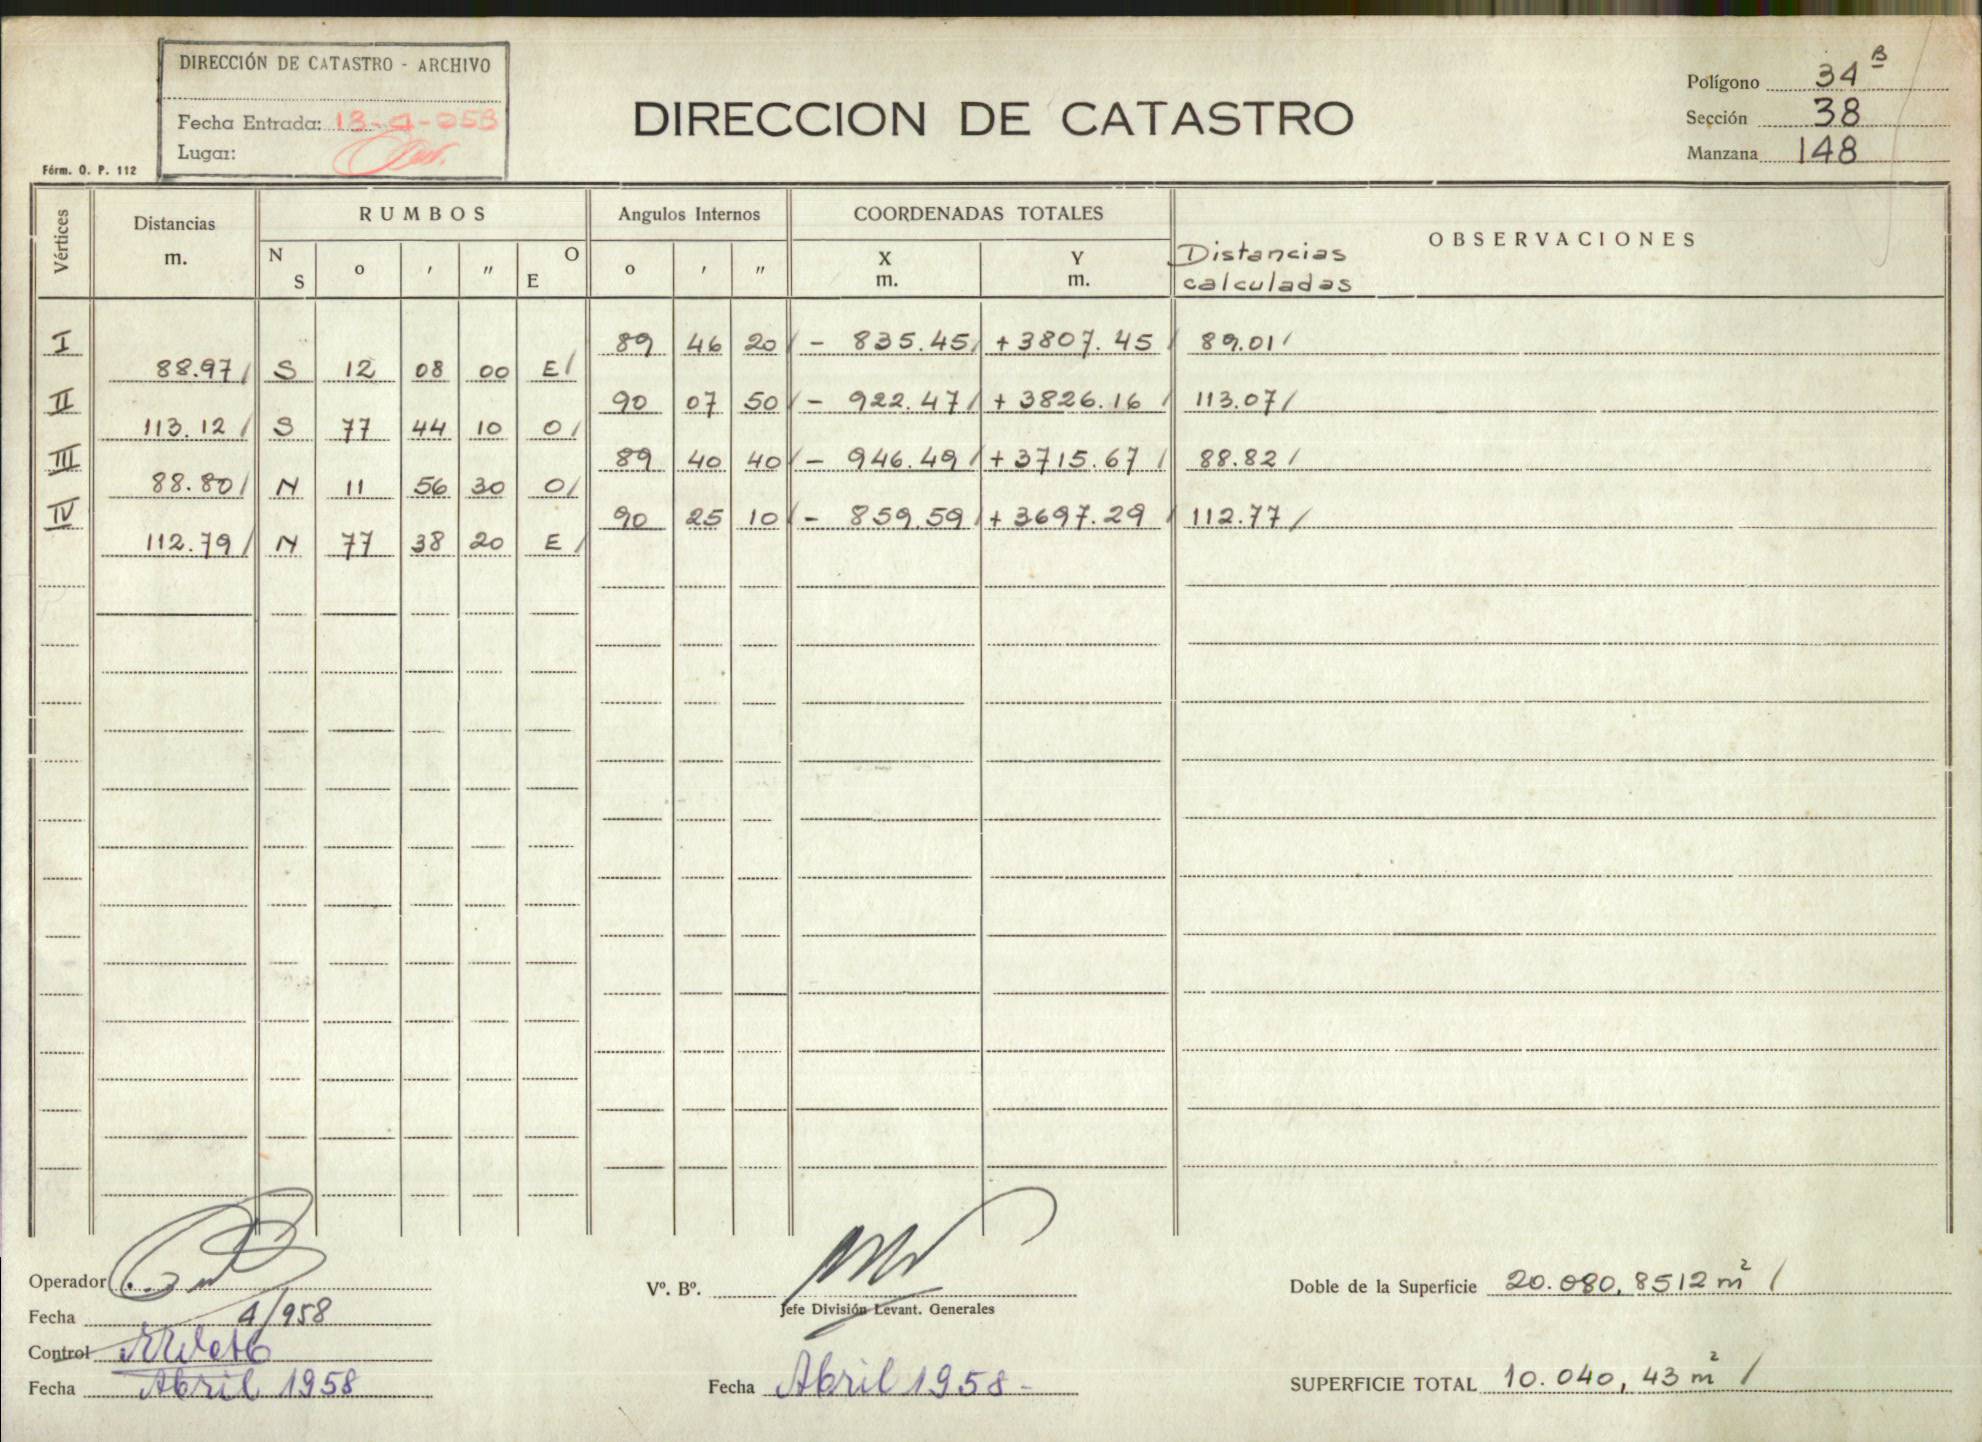 DIRECCIÓN DE CATASTRO - ARCHIVO
Fecha Entrada: 18-4-958
Lugar:
Fórm. O. P. 112
DIRECCION DE CATASTRO
Polígono 34 B
Sección 38
Manzana 148
Vértices Distancias m. RUMBOS Angulos Internos COORDENADAS TOTALES OBSERVACIONES
N S o ' " O E o ' " X m. Y m. Distancias calculadas
I 89 46 20 / - 835.45 / + 3807.45 / 89.01 /
88.97 / S 12 08 00 E /
II 90 07 50 / - 922.47 / + 3826.16 / 113.07 /
113.12 / S 77 44 10 O /
III 89 40 40 / - 946.49 / + 3715.67 / 88.82 /
88.80 / N 11 56 30 O /
IV 90 25 10 / - 859.59 / + 3697.29 / 112.77 /
112.79 / N 77 38 20 E /
Operador
Fecha 4/958
Control
Fecha Abril 1958
Vº. Bº.
Jefe División Levant. Generales
Fecha Abril 1958 -
Doble de la Superficie 20.080,8512 m² /
SUPERFICIE TOTAL 10.040,43 m² /